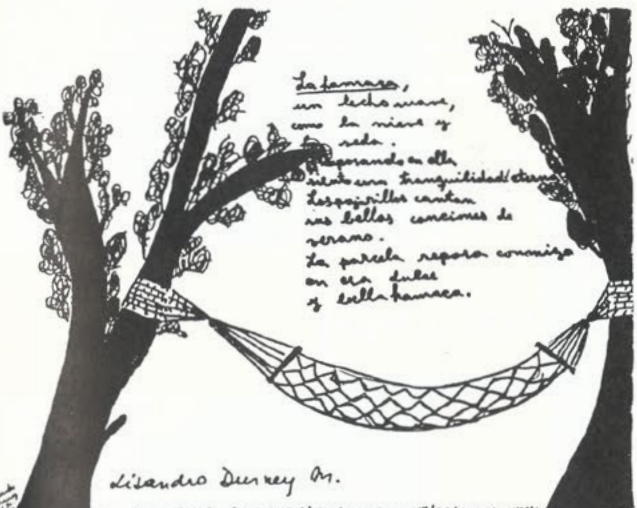 La hamaca,
un lecho suave,
como la nieve y
seda.
Reposando en ella
siento una tranquilidad eterna
Los pajarillos cantan
sus bellas canciones de
verano.
La parcela reposa conmigo
en esa dulce
y bella hamaca.
Lisandro Durney M.